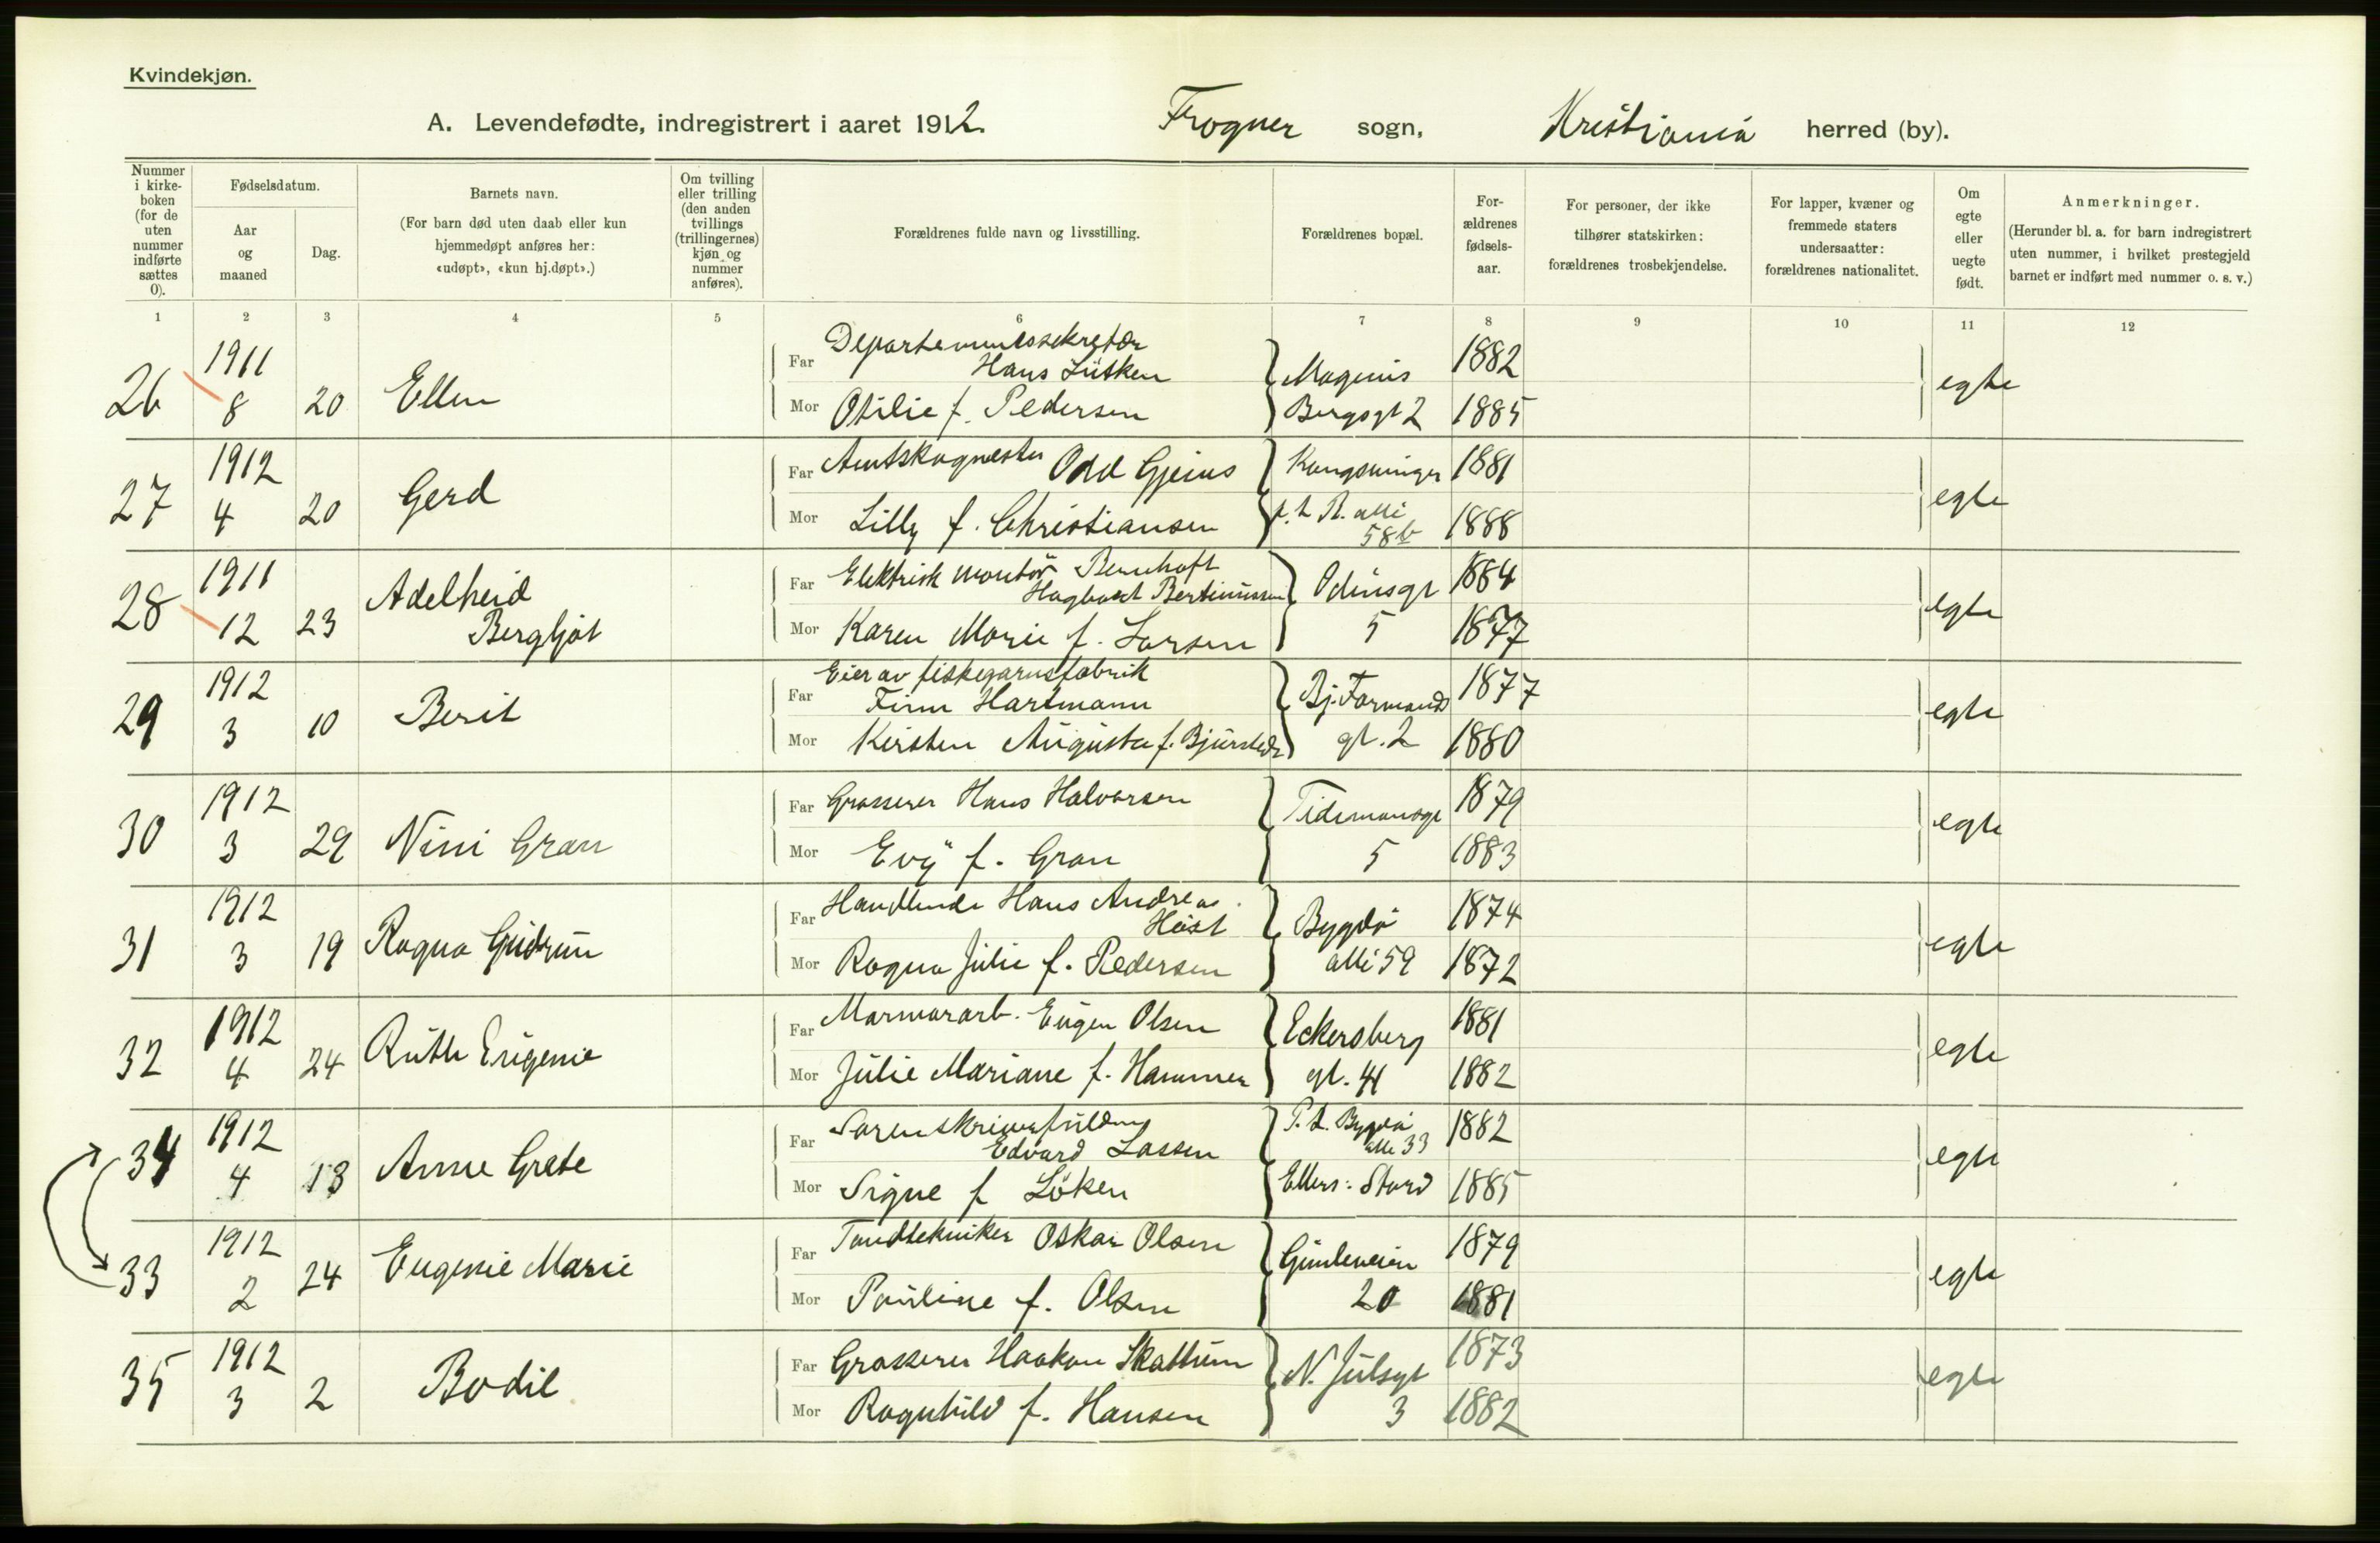 Kvindekjøn.
A. Levendefødte, indregistrert i aaret 1912. Frogner sogn, Kristiania herred (by).
Nummer i kirke-boken (for de uten nummer indførte sættes 0).
Fødselsdatum.
Aar og maaned
Dag.
Barnets navn.
(For barn død uten daab eller kun hjemmedøpt anføres her: «udøpt», «kun hj.døpt».)
Om tvilling eller trilling (den anden tvillings (trillingernes) kjøn og nummer anføres).
Forældrenes fulde navn og livsstilling.
Forældrenes bopæl.
For-ældrenes fødsels-aar.
For personer, der ikke tilhører statskirken: forældrenes trosbekjendelse.
For lapper, kvæner og fremmede staters undersaatter: forældrenes nationalitet.
Om egte eller uegte født.
Anmerkninger.
(Herunder bl. a. for barn indregistrert uten nummer, i hvilket prestegjeld barnet er indført med nummer o. s. v.)
1 2 3 4 5 6 7 8 9 10 11 12
26 1911 8 20 Ellen
Far Departementssekretær Hans Lütken
Mor Otilie f. Pedersen
Magnus Bergsgt 2
1882
1885
egte
27 1912 4 20 Gerd
Far Amtskogmester Odd Gjems
Mor Lilly f. Christiansen
Kongsvinger p.t. B. alle 58b
1881
1888
egte
28 1911 12 23 Adelheid Bergljot
Far Elektrisk montør Bernhoft Hagbart Bertinussen
Mor Karen Marie f. Larsen
Odinsgt 5
1884
1877
egte
29 1912 3 10 Berit
Far Eier av fiskegarnsfabrik Finn Hartmann
Mor Kirsten Augusta f. Bjurstedt
Bj. Farmands gt. 2
1877
1880
egte
30 1912 3 29 Nini Gran
Far Grosserer Hans Halvorsen
Mor Evy f. Gran
Tidemansgt 5
1879
1883
egte
31 1912 3 19 Ragna Gudrun
Far Handlende Hans Andreas Høst
Mor Ragna Julie f. Pedersen
Bygdø alle 59
1874
1872
egte
32 1912 4 24 Ruth Eugenie
Far Marmorarb. Eugen Olsen
Mor Julie Mariane f. Hammer
Eckersberg gt. 41
1881
1882
egte
34 1912 4 13 Anne Grete
Far Sorenskriverfuldm Edvard Lassen
Mor Signe f Løken
P.t. Bygdø alle 33
Ellers: Stord
1882
1885
egte
33 1912 2 24 Eugenie Marie
Far Tandtekniker Oskar Olsen
Mor Pauline f. Olsen
Gimleveien 20
1879
1881
egte
35 1912 3 2 Bodil
Far Grosserer Haakon Skattum
Mor Ragnhild f. Hansen
N. Julsgt 3
1873
1882
egte